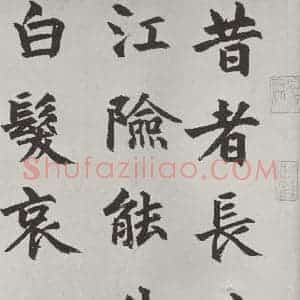 昔者長
江險能
白髮哀
Shufaziliao.com